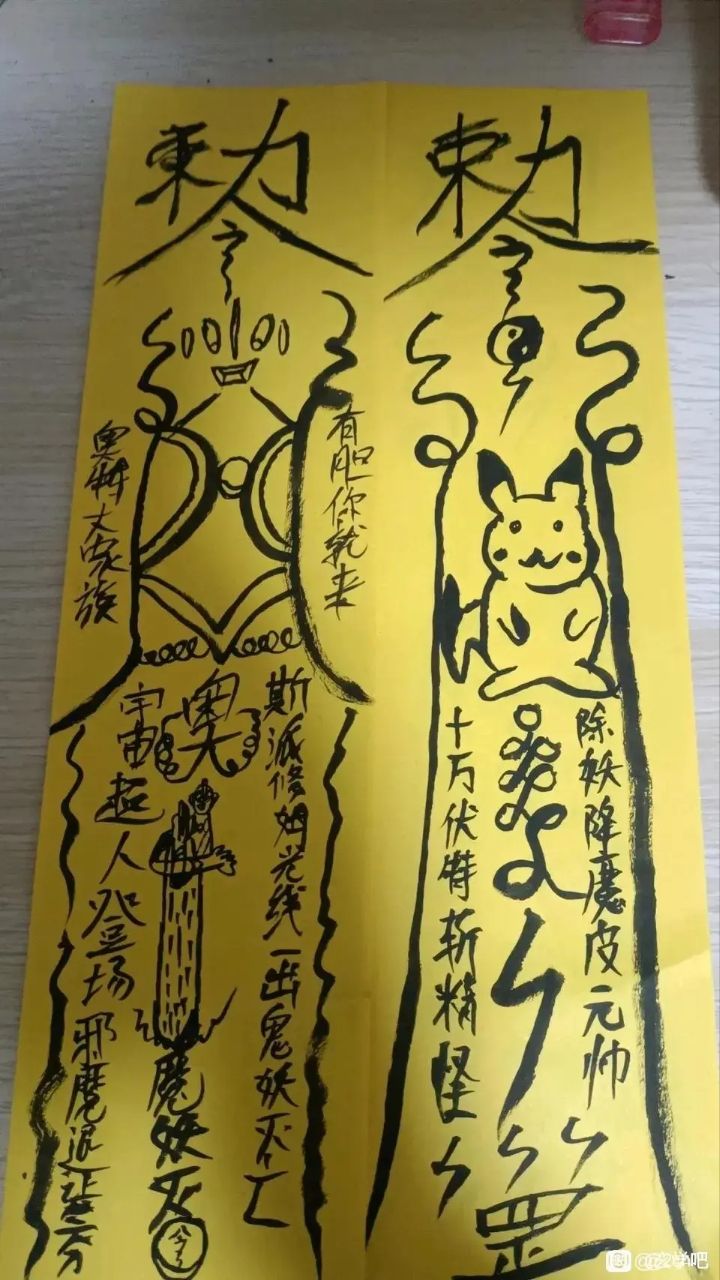 敕
令
除妖降魔皮元帅
十万伏特斩精怪
罡
敕
令
有胆你就来
奥特大家族
斯派修姆光线一出鬼妖灭亡
奥
宇宙超人登场邪魔退
魔妖灭